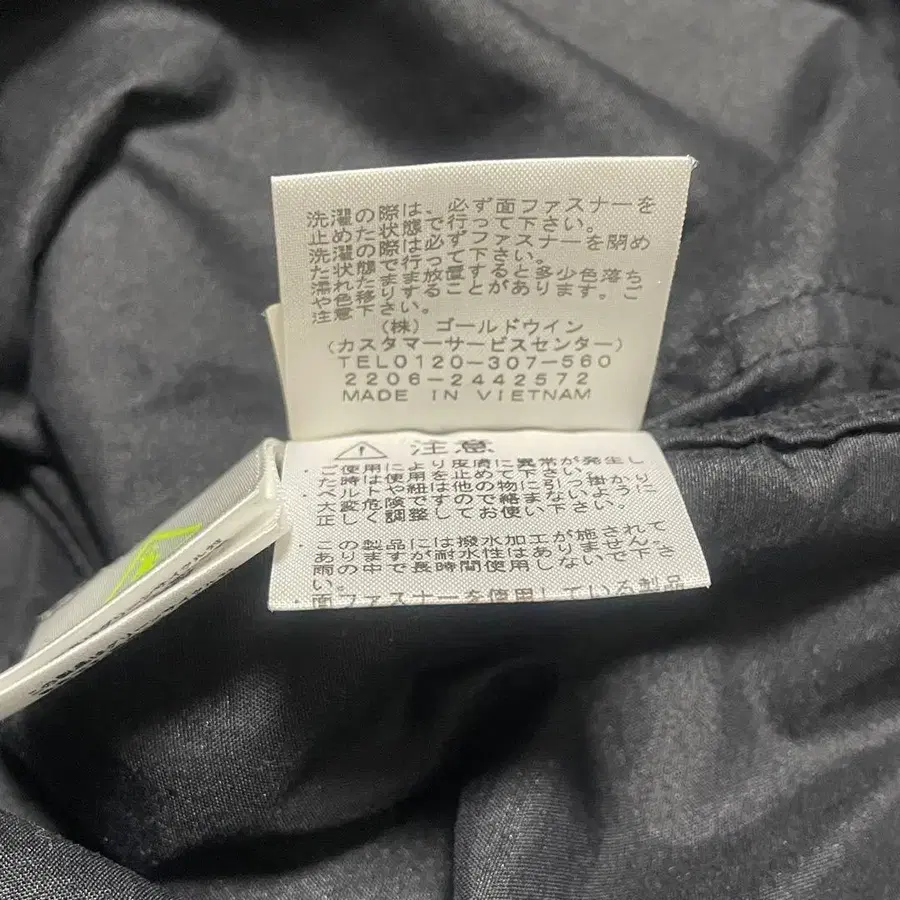 洗濯の際は、必ず面ファスナーを
止めた状態で行って下さい。
洗濯の際は必ずファスナーを閉め
た状態で行って下さい。
濡れたまま放置すると多少色落ち
や色移りすることがあります。ご
注意下さい。
(株) ゴールドウイン
(カスタマーサービスセンター)
TEL0120-307-560
2206-2442572
MADE IN VIETNAM
注意
・ご使用により皮膚に異常が発生し
た時は使用を止めて下さい。
・ベルトや紐は他の物に引っ掛かり
大変危険ですので絡まないように
正しく調整してお使い下さい。
・この製品には撥水加工が施されて
ありますが耐水性はありません。
雨の中で長時間使用しないで下さ
い。
・面ファスナーを使用している製品